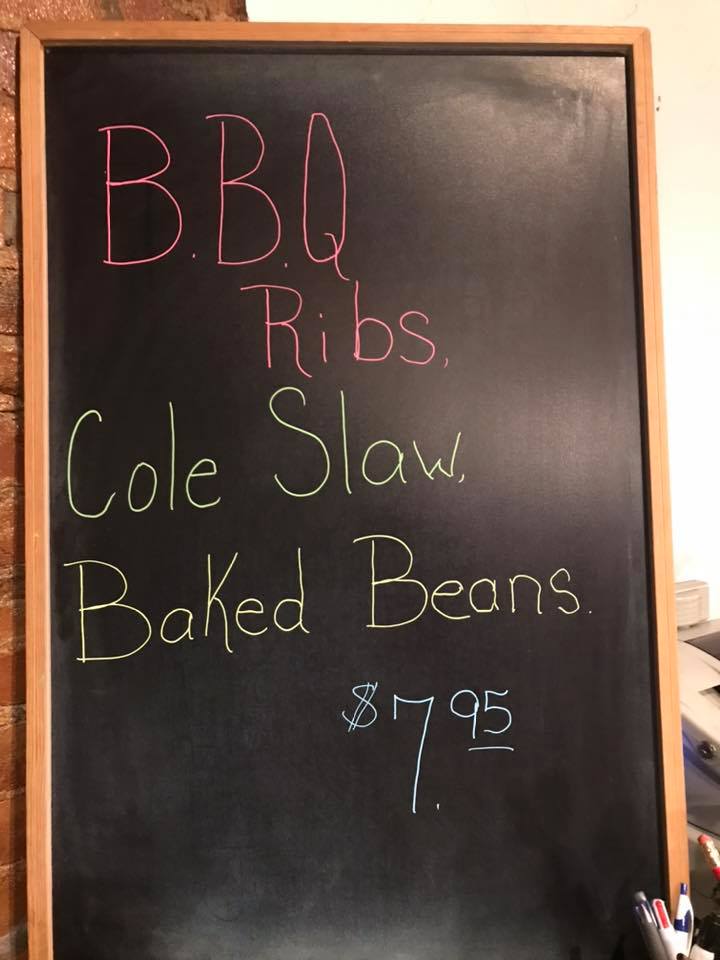 B.B.Q
Ribs,
Cole Slaw,
Baked Beans.
$7.95